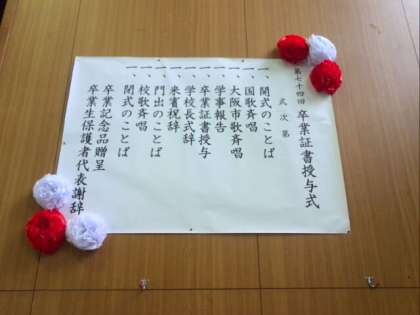 第七十四回 卒業証書授与式
式次第
一、開式のことば
一、国歌斉唱
一、大阪市歌斉唱
一、学事報告
一、卒業証書授与
一、学校長式辞
一、来賓祝辞
一、門出のことば
一、校歌斉唱
一、閉式のことば
卒業記念品贈呈
卒業生保護者代表謝辞